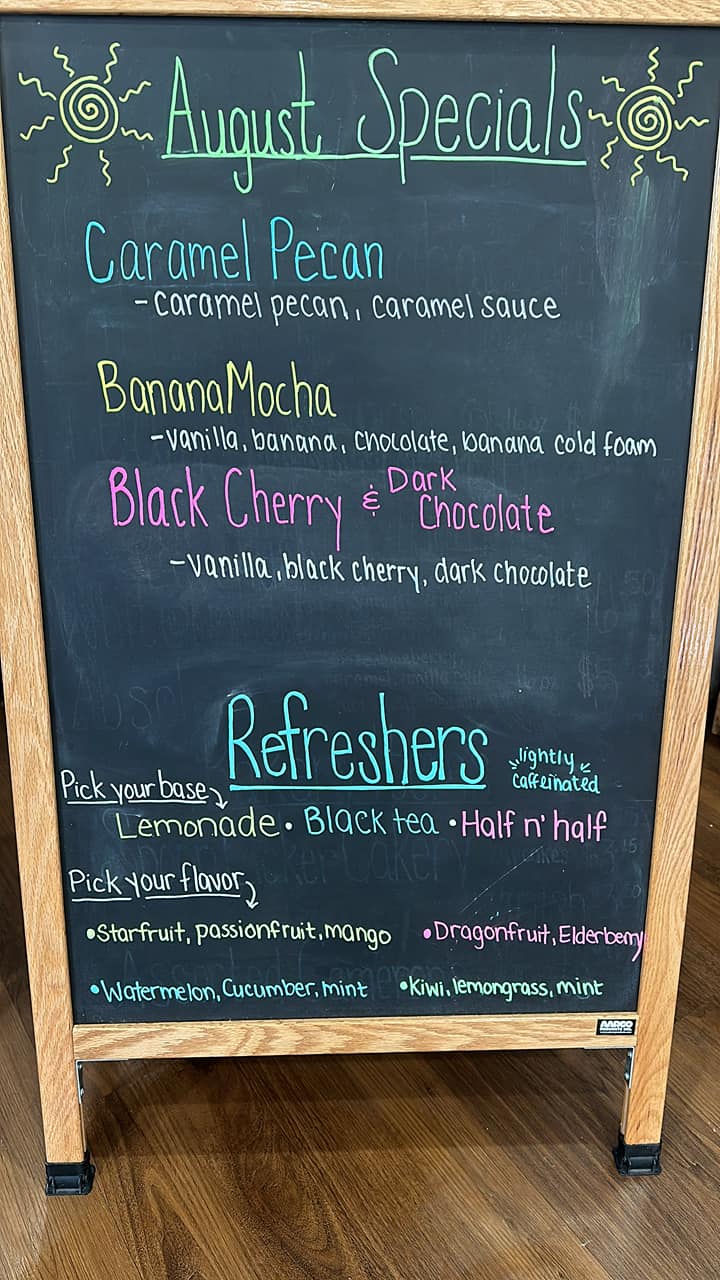 August Specials
Caramel Pecan
-caramel pecan, caramel sauce
Banana Mocha
-vanilla, banana, chocolate, banana cold foam
Black Cherry & Dark Chocolate
-vanilla, black cherry, dark chocolate
Refreshers
lightly caffeinated
Pick your base
Lemonade • Black tea • Half n' half
Pick your flavor
•Starfruit, passionfruit, mango •Dragonfruit, Elderberry
•Watermelon, Cucumber, mint •Kiwi, lemongrass, mint
AARCO